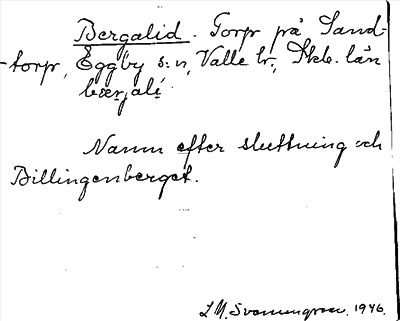 Bergalid. Torp på Sand-
torp, Eggby s:n, Valle hr, Skb. län
bærjali
Namn efter sluttning och
Billingenberget.
L M. Svanungson. 1946.